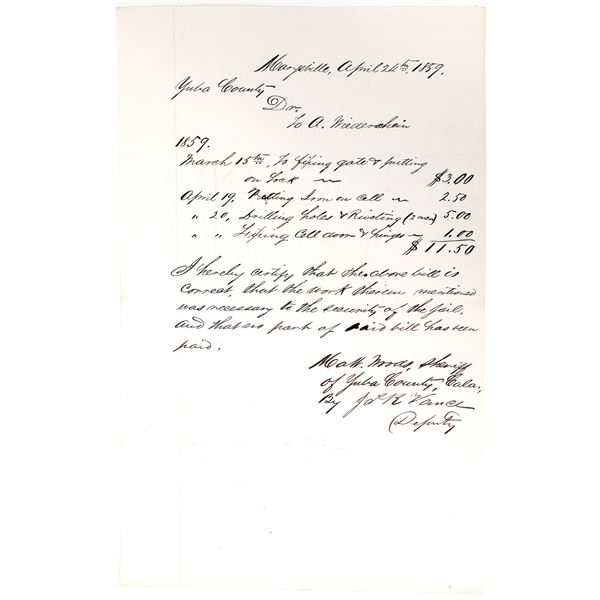 Marysville, April 24th, 1859.
Yuba County
Dr.
To A. Niederchain
1859.
March 15th, To fixing gate & putting
on Lock ~ $3.00
April 19. Putting Iron on Cell ~ 2.50
" 20, Drilling holes & Riveting (2 men) 5.00
" " Fixing Cell door & hinges ~ 1.00
$ 11.50
I hereby certify that the above bill is
correct, that the work therein mentioned
was necessary to the security of the jail,
and that no part of said bill has been
paid.
Matt. Woods, Sheriff
of Yuba County, Cala.,
By J R Vance
Deputy